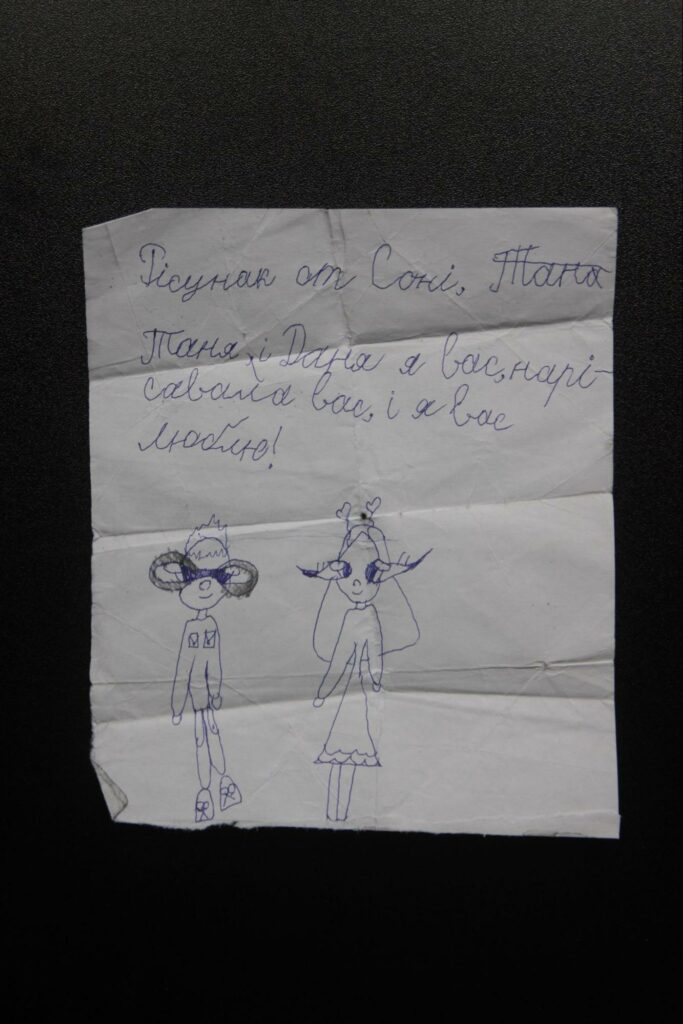 Рісунак от Соні, Тана
Таня, і Даня я вас, нарі-
савала вас, і я вас
люблю!